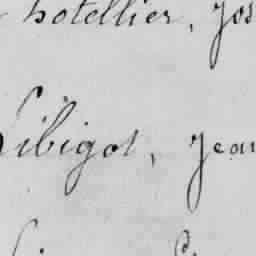 hotellier, Jos
Libigot, Jean